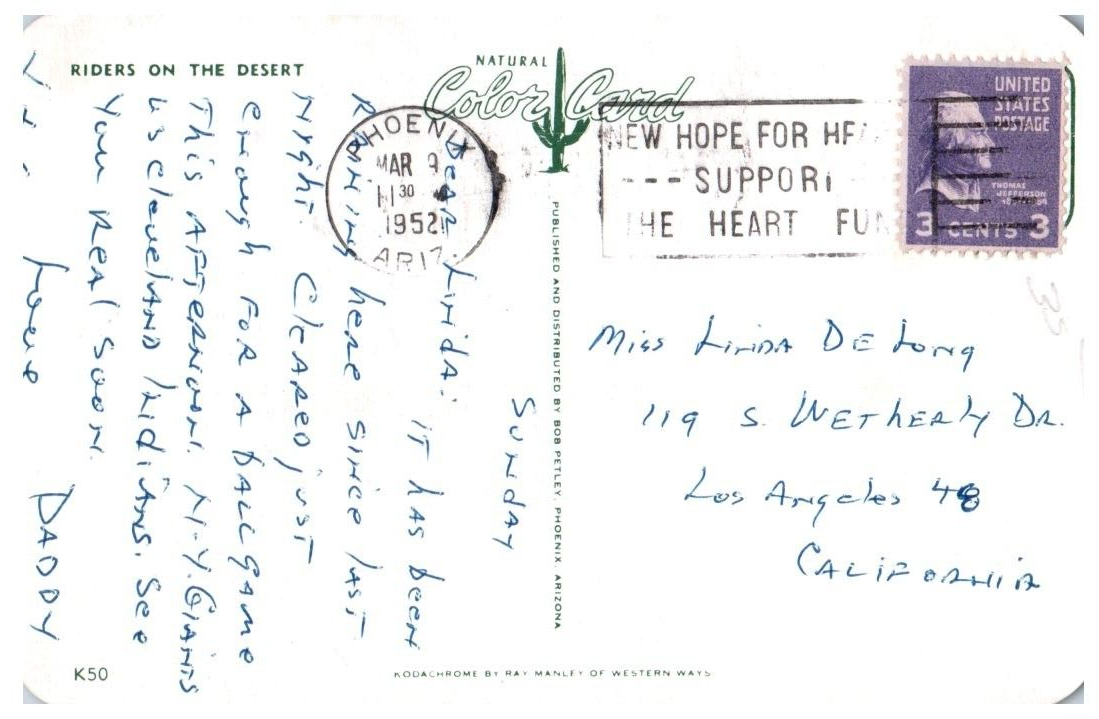 RIDERS ON THE DESERT
NATURAL
Color Card
PHOENIX
MAR 9
11 30
1952
ARIZ.
NEW HOPE FOR HEA
--- SUPPORT
THE HEART FUN
UNITED
STATES
POSTAGE
THOMAS
JEFFERSON
3 CENTS 3
35
SUNDAY
Dear Linda:
IT HAS been
RAINING here SINCE LAST
Night. CLEARED JUST
enough FOR A BALLGAME
THIS AFTERNOON. N.Y. GIANTS
vs Cleveland Indians. See
you Real Soon.
Love
DADDY
PUBLISHED AND DISTRIBUTED BY BOB PETLEY, PHOENIX, ARIZONA
Miss Linda De Long
119 S. Wetherly Dr.
Los Angeles 48
CALIFORNIA
K50
KODACHROME BY RAY MANLEY OF WESTERN WAYS